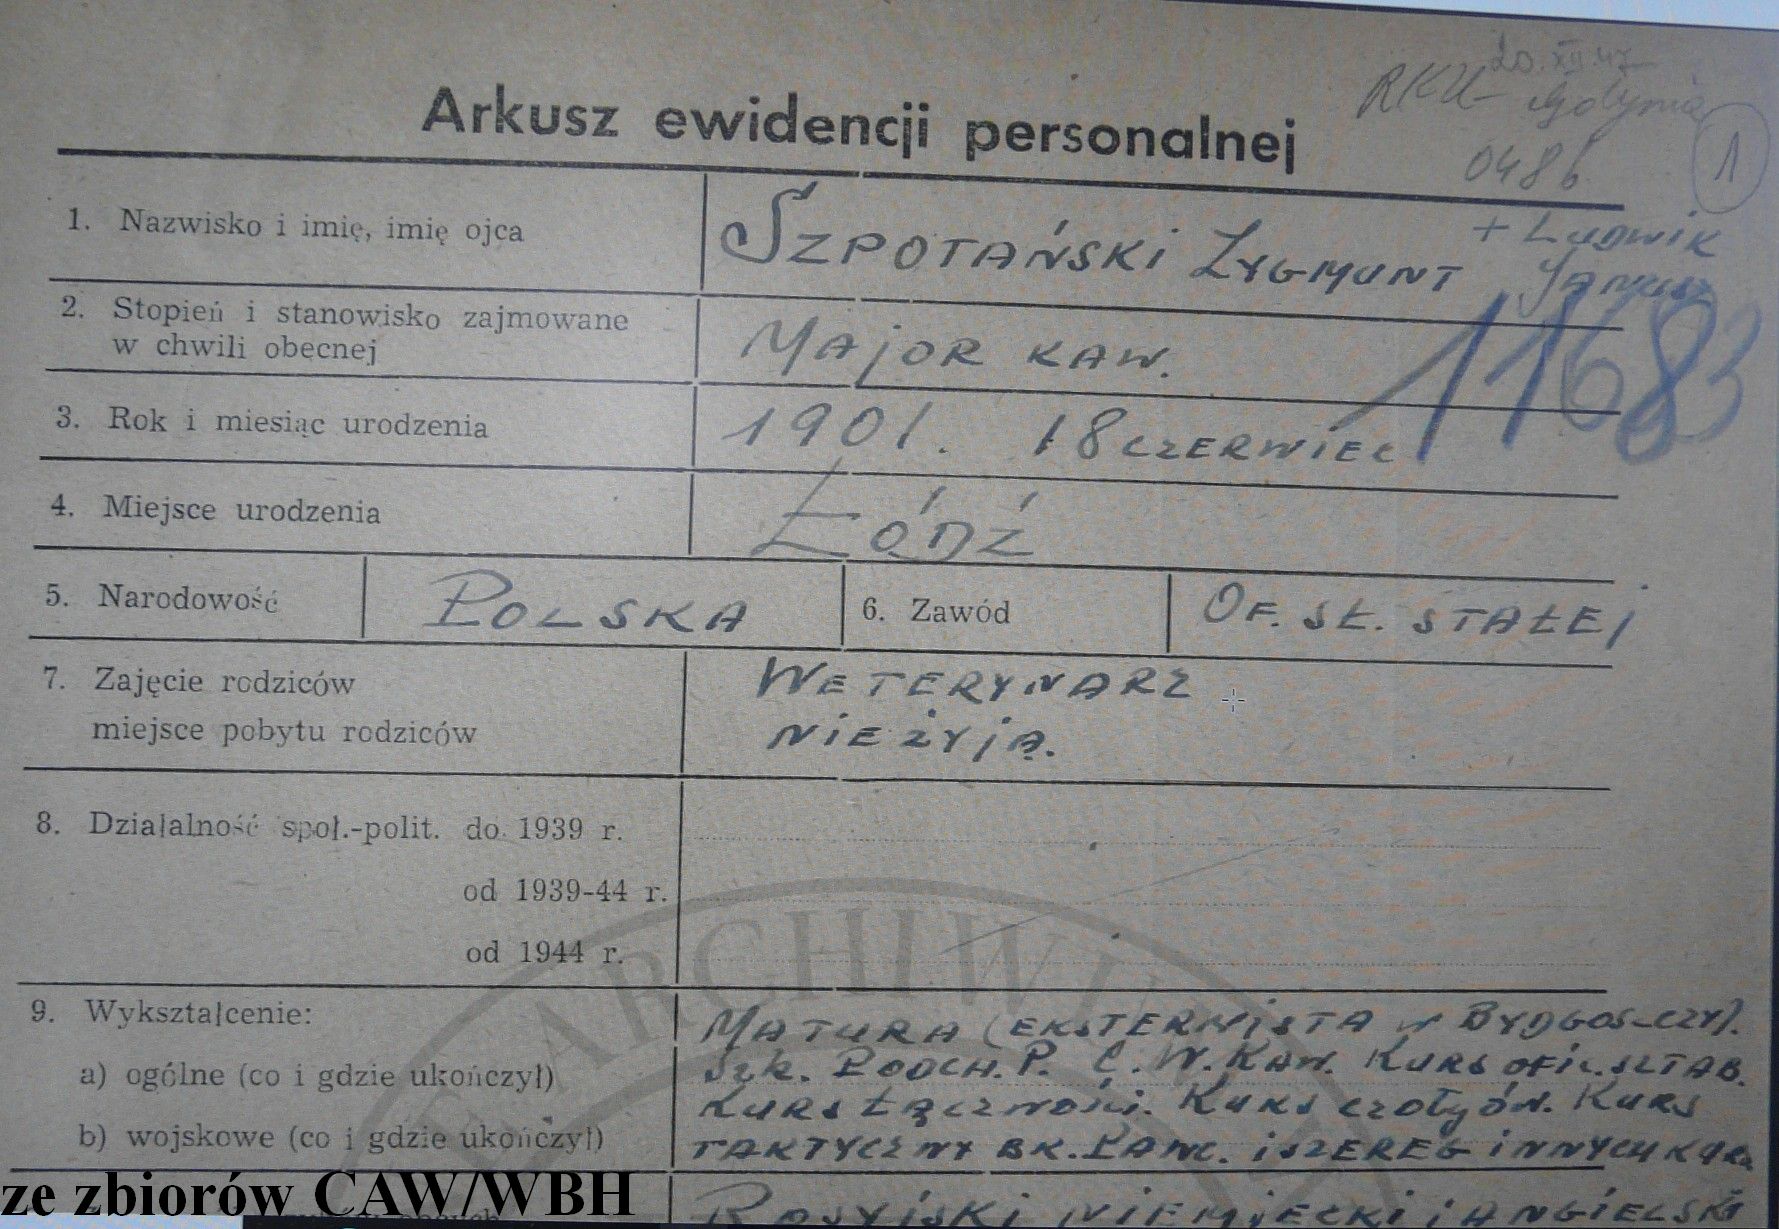 20.XII.47
RKU Gdynia
Arkusz ewidencji personalnej
048b
1
1. Nazwisko i imię, imię ojca
SZPOTAŃSKI ZYGMUNT + LUDWIK
JANUSZ
1168
2. Stopień i stanowisko zajmowane
w chwili obecnej
MAJOR KAW.
3. Rok i miesiąc urodzenia
1901. 18 CZERWIEC
4. Miejsce urodzenia
ŁÓDŹ
5. Narodowość POLSKA 6. Zawód OF. SŁ. STAŁEJ
7. Zajęcie rodziców WETERYNARZ
miejsce pobytu rodziców NIE ŻYJĄ.
8. Działalność społ.-polit. do 1939 r.
od 1939-44 r.
od 1944 r.
ARCHIWU
9. Wykształcenie: MATURA (EKSTERNISTA W BYDGOSZCZY).
a) ogólne (co i gdzie ukończył) SZK. PODCH. P. C.W. KAW. KURS OFIC. SZTAB.
KURS ŁĄCZNOŚCI. KURS CZOŁGÓW. KURS
b) wojskowe (co i gdzie ukończył) TAKTYCZNY BR. PANC. I SZEREG INNYCH
ze zbiorów CAW/WBH
ROSYJSKI NIEMIECKI i ANGIELSKI